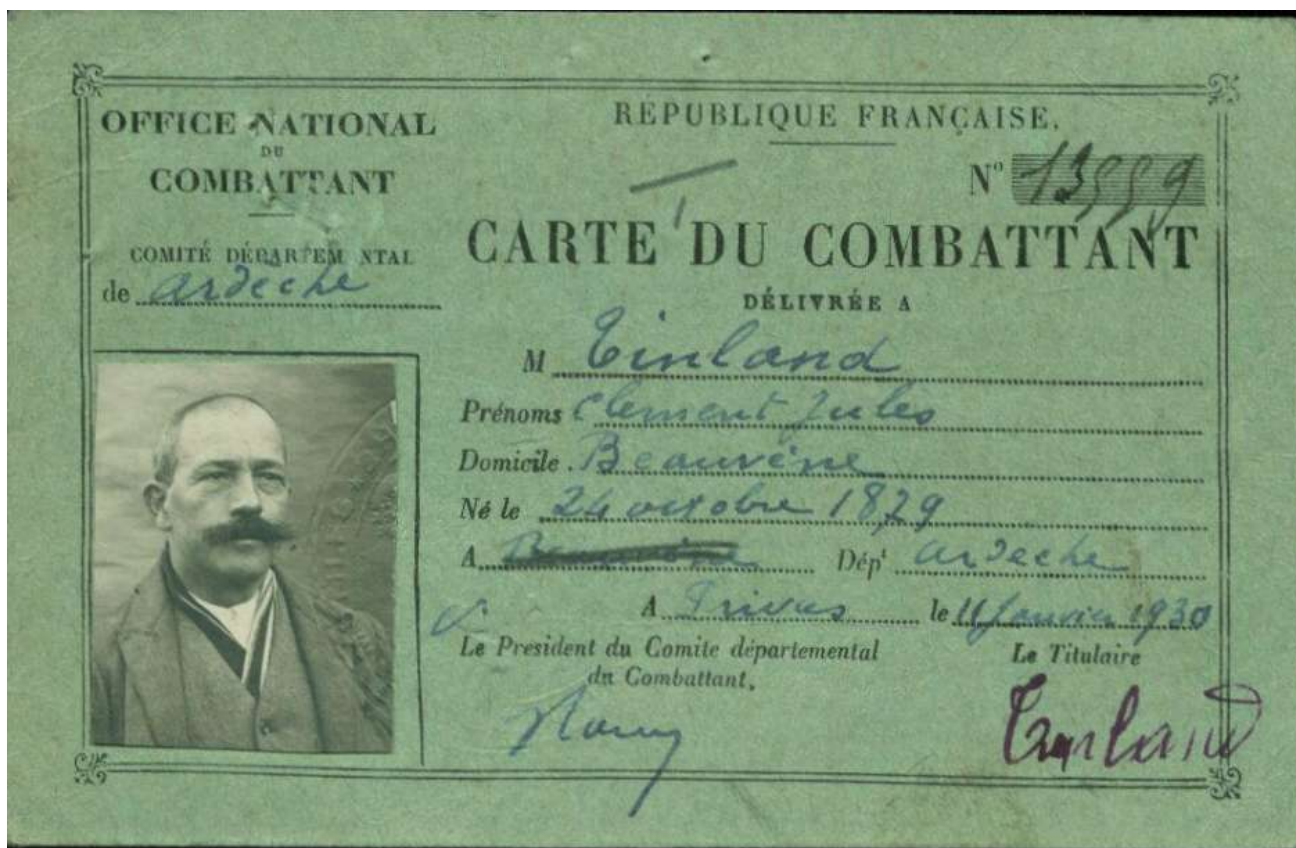 OFFICE NATIONAL
DU
COMBATTANT
COMITÉ DÉPARTEM NTAL
de ardèche
RÉPUBLIQUE FRANÇAISE.
N° 13559
CARTE DU COMBATTANT
DÉLIVRÉE A
M Tinland
Prénoms Clément Jules
Domicile. Beauvène
Né le 24 octobre 1879
A Beauvène Dép<sup>t</sup> ardeche
A Privas le 11 Janvier 1930
Le President du Comite départemental
du Combattant,
Le Titulaire
Tinland